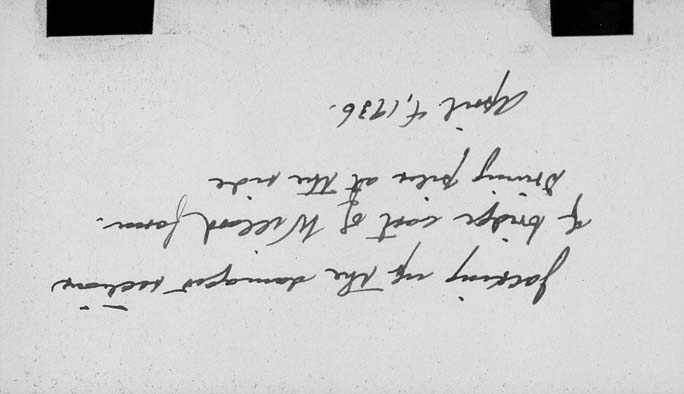 Jacking up the damaged sections
of bridge east of Willard farm.
Driving piles at the side
April 4, 1936.